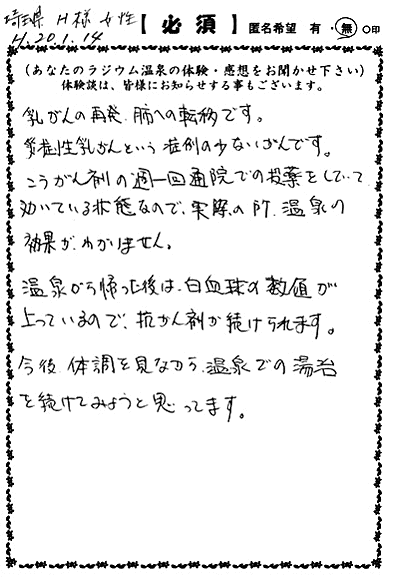 埼玉県 H様 女性 【必須】 匿名希望 有・無 ○印
H.20.1.14
(あなたのラジウム温泉の体験・感想をお聞かせ下さい)
体験談は、皆様にお知らせする事もございます。
乳がんの再発 肺への転移です。
炎症性乳がんという症例の少ないがんです。
こうがん剤の週一回通院での投薬をしていて
効いている状態なので、実際の所、温泉の
効果が、わかりません。
温泉から帰った後は、白血球の数値が
上っているので、抗がん剤が続けられます。
今後、体調を見ながら、温泉での湯治
を続けてみようと思ってます。